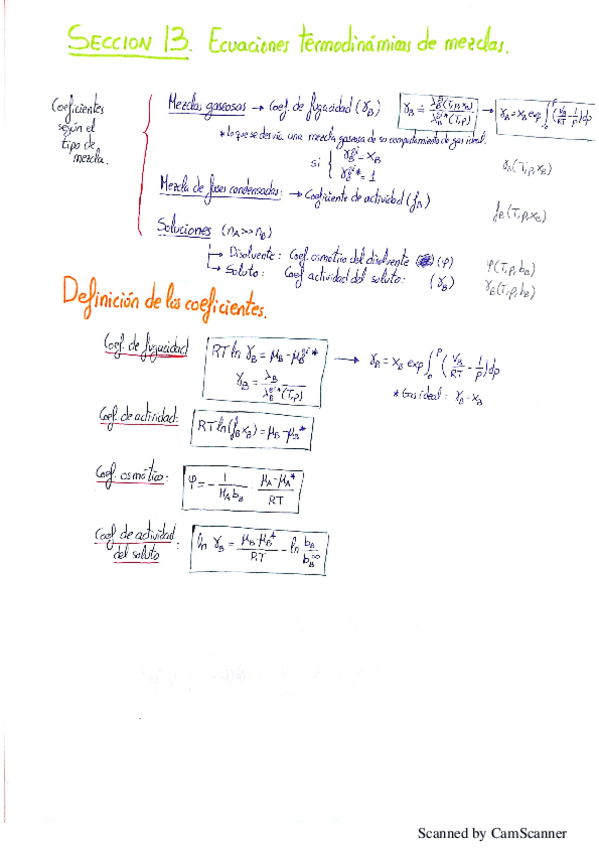 SECCION 13. Ecuaciones termodinámicas de mezclas.
Coeficientes según el tipo de mezcla.
Mezclas gaseosas → Coef. de fugacidad (γ_B) γ_B = λ_B(T,p,x_B) / λ_B^gi*(T,p) → γ_B = x_B exp ∫_0^p (V_B/RT - 1/p) dp
* lo que se desvía una mezcla gaseosa de su comportamiento de gas ideal.
si { γ_B^gi = x_B
γ_B^gi* = 1
γ_B(T,p,x_B)
Mezcla de fases condensadas: → Coeficiente de actividad (f_B)
f_B(T,p,x_B)
Soluciones (n_A >> n_B)
→ Disolvente: Coef. osmótico del disolvente (φ) φ(T,p,b_B)
→ Soluto: Coef actividad del soluto: (γ_B) γ_B(T,p,b_B)
Definición de los coeficientes.
Coef. de fugacidad RT ln γ_B = μ_B - μ_B^gi* → γ_B = x_B exp ∫_0^p (V_B/RT - 1/p) dp
γ_B = λ_B / λ_B^gi*(T,p)
* Gas ideal: γ_B = x_B
Coef. de actividad: RT ln(f_B x_B) = μ_B - μ_B*
Coef. osmótico: φ = - 1/(M_A b_B) · (μ_A - μ_A*)/RT
Coef. de actividad del soluto: ln γ_B = (μ_B - μ_B^*)/RT - ln b_B/b_B^∞
Scanned by CamScanner